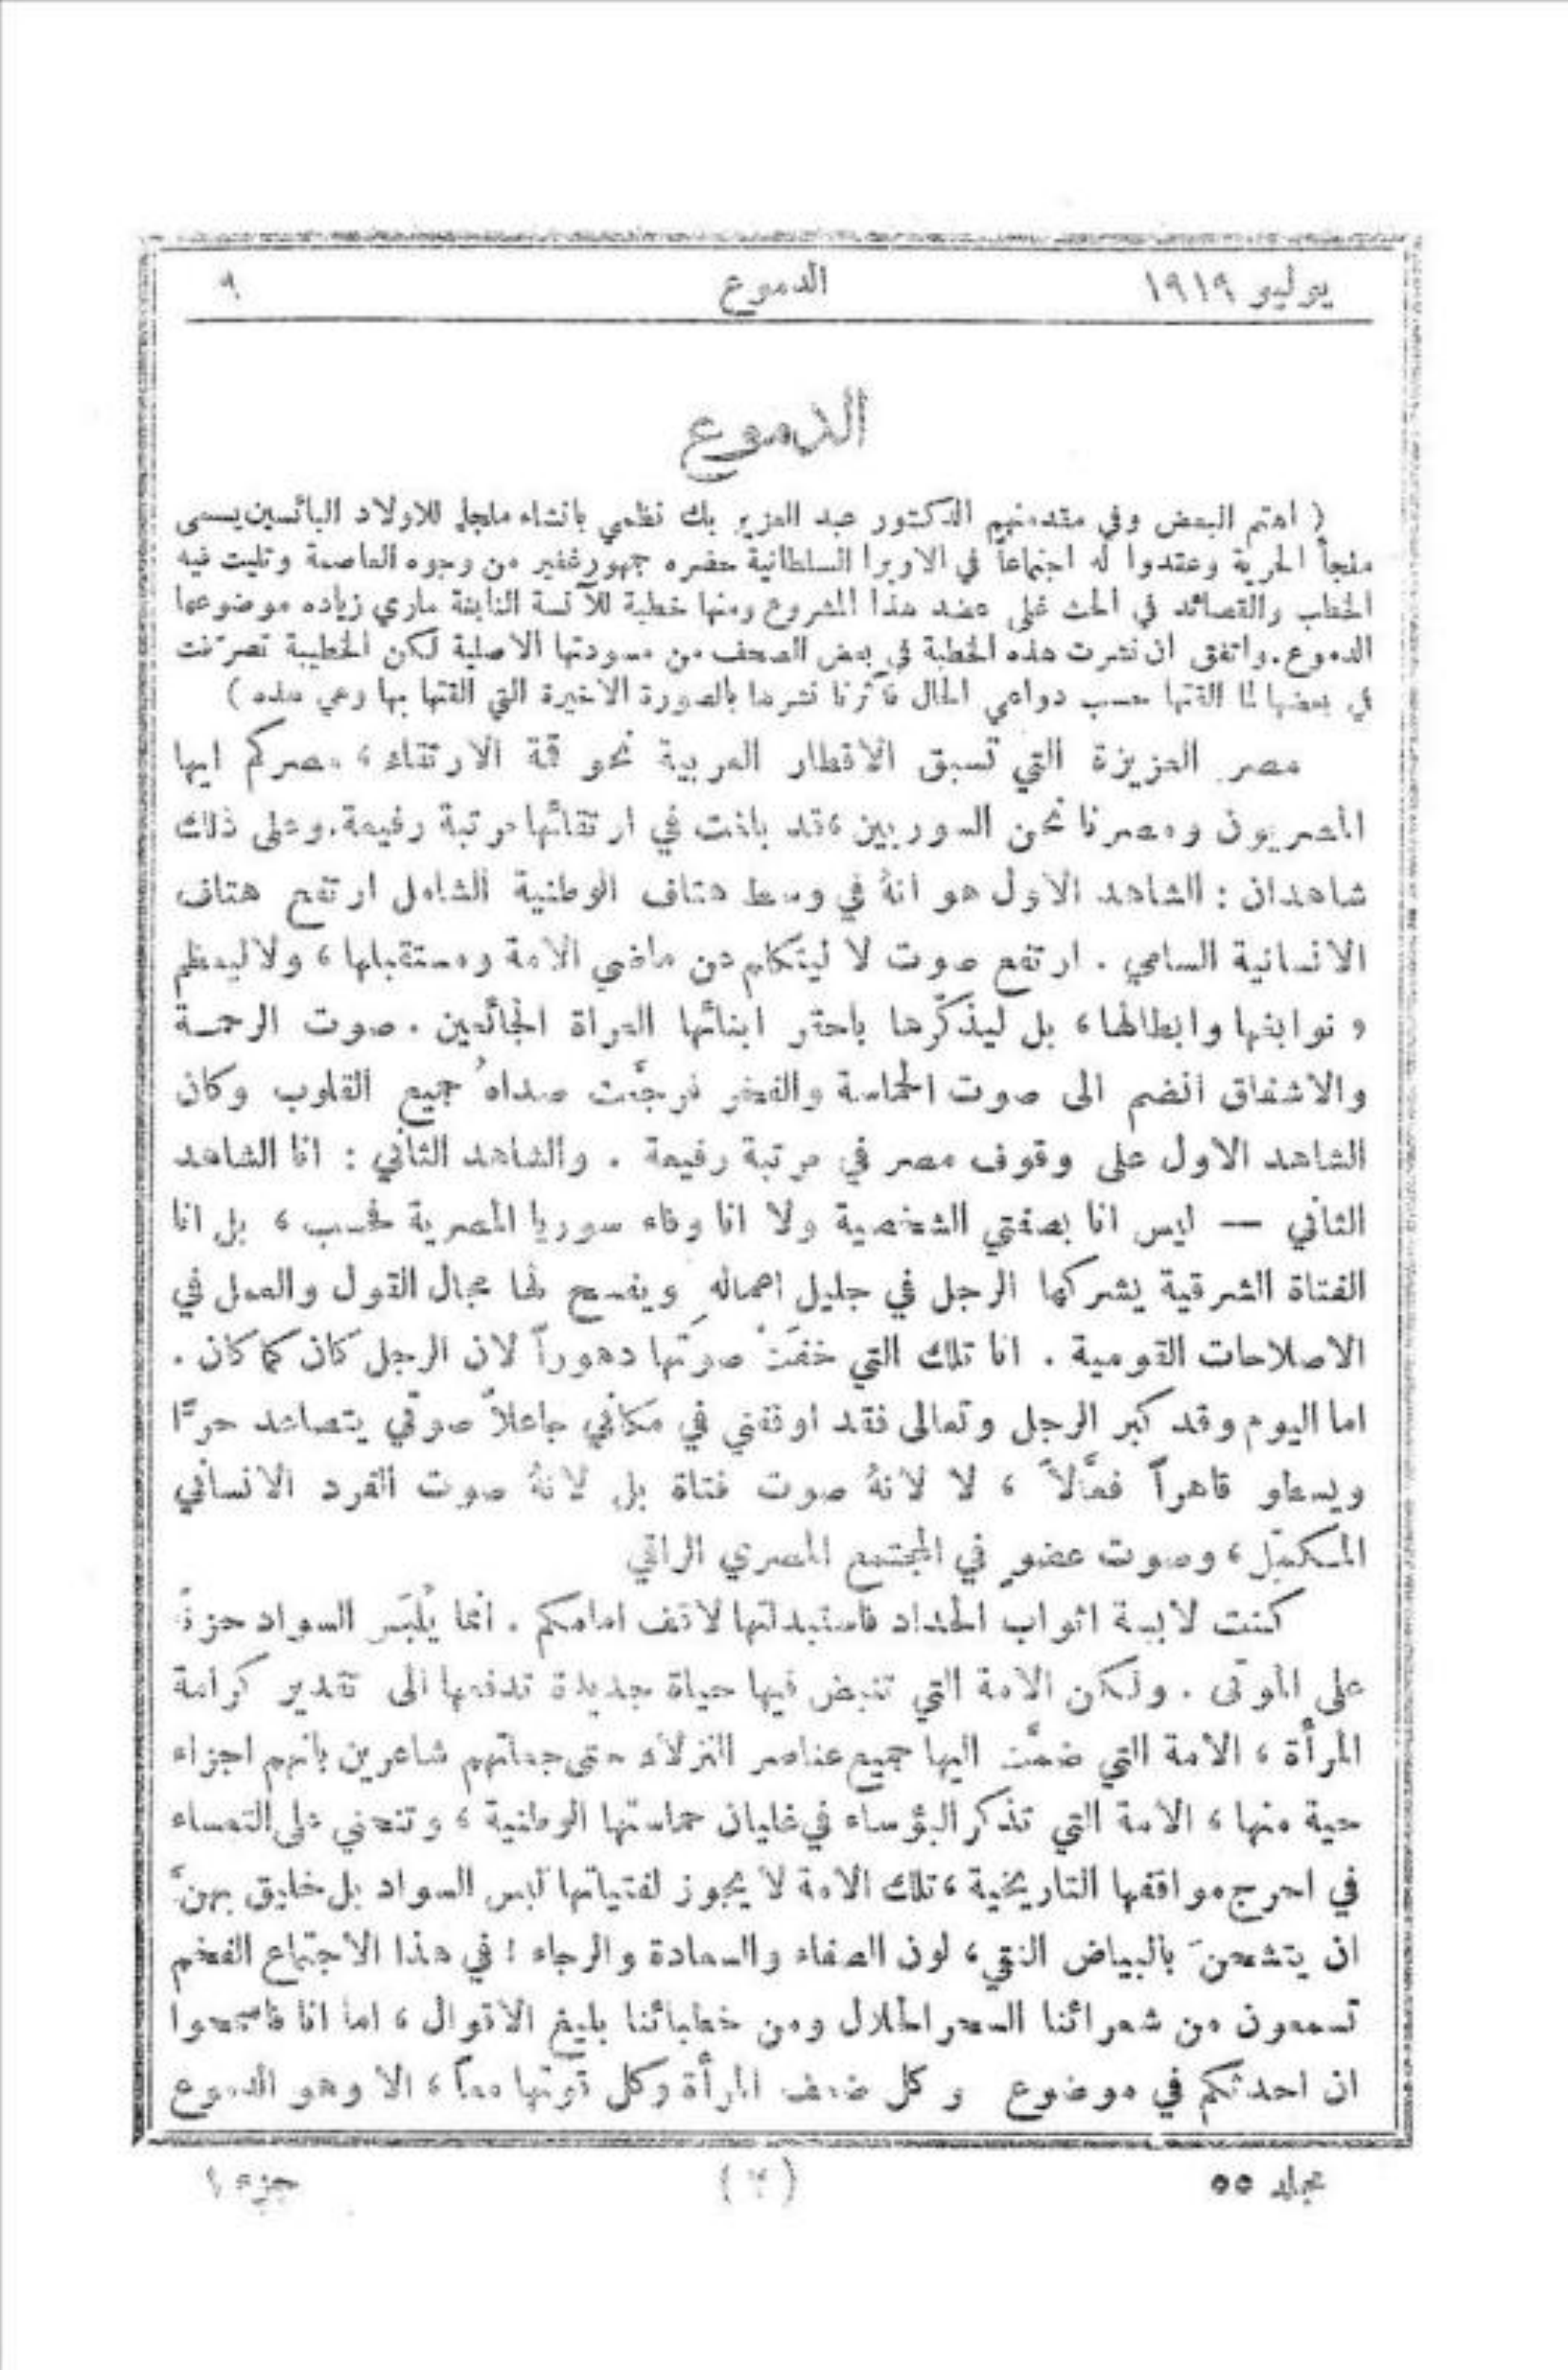 يوليو ١٩١٩ الدموع ٩
الدموع
( اهتم البعض وفي مقدمتهم الدكتور عبد العزيز بك نظمي بانشاء ملجإ للاولاد البائسين يسمى
ملجأ الحرية وعقدوا له اجتماعاً في الاوبرا السلطانية حضره جمهور غفير من وجوه العاصمة وتليت فيه
الخطب والقصائد في الحث على عضد هذا المشروع ومنها خطبة للآنسة النابغة ماري زياده موضوعها
الدموع . واتفق ان نشرت هذه الخطبة في بعض الصحف من مسودتها الاصلية لكن الخطيبة تصرّفت
في بعضها لما القتها حسب دواعي الحال فآثرنا نشرها بالصورة الاخيرة التي القتها بها وهي هذه )
مصر العزيزة التي تسبق الاقطار العربية نحو قمة الارتقاء ، مصركم ايها
المصريون ومصرنا نحن السوريين ، قد بلغت في ارتقائها مرتبة رفيعة . وعلى ذلك
شاهدان : الشاهد الاول هو انهُ في وسط هتاف الوطنية الشامل ارتفع هتاف
الانسانية السامي . ارتفع صوت لا ليتكلم عن ماضي الامة ومستقبلها ، ولا ليعظم
نوابغها وابطالها ، بل ليذكّرها باحقر ابنائها العراة الجائعين . صوت الرحمة
والاشفاق انضم الى صوت الحماسة والفخر فرجَّت صداهُ جميع القلوب وكان
الشاهد الاول على وقوف مصر في مرتبة رفيعة . والشاهد الثاني : انا الشاهد
الثاني — ليس انا بصفتي الشخصية ولا انا وفاء سوريا المصرية فحسب ، بل انا
الفتاة الشرقية يشركها الرجل في جليل اعمالهِ ويفسح لها مجال القول والعمل في
الاصلاحات القومية . انا تلك التي خفَتَ صوتها دهوراً لان الرجل كان كما كان .
اما اليوم وقد كبر الرجل وتعالى فقد اوقفني في مكاني جاعلاً صوتي يتصاعد حرًّا
ويعلو قاهراً فعَّالاً ، لا لانهُ صوت فتاة بل لانهُ صوت الفرد الانساني
المكمّل ، وصوت عضوٍ في المجتمع المصري الراقي
كنت لابسة اثواب الحداد فاستبدلتها لاقف امامكم . انما يُلبَس السواد حزناً
على الموتى . ولكن الامة التي تنبض فيها حياة جديدة تدفعها الى تقدير كرامة
المرأة ، الامة التي ضمَّت اليها جميع عناصر النزلاء حتى جعلتهم شاعرين بانهم اجزاء
حية منها ، الامة التي تذكر البؤساء في غليان حماستها الوطنية ، وتنحني على التعساء
في احرج مواقفها التاريخية ، تلك الامة لا يجوز لفتياتها لبس السواد بل خليق بهنَّ
ان يتشحنَ بالبياض النقي ، لون الصفاء والسعادة والرجاء ! في هذا الاجتماع الفخم
تسمعون من شعرائنا السحر الحلال ومن خطبائنا بليغ الاقوال ، اما انا فاسمحوا
ان احدثكم في موضوع و كل ضعف المرأة وكل قوتها معاً ، الا وهو الدموع
مجلد ٥٥ (٢) جزء ١